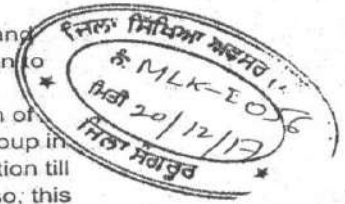 and
n to
n of
oup in
tion till
so, this
ਜ਼ਿਲਾ ਸਿੱਖਿਆ ਅਫਸਰ
ਨੰ: MLK-EO56
ਮਿਤੀ 20/12/17
ਜਿਲਾ ਸੰਗਰੂਰ